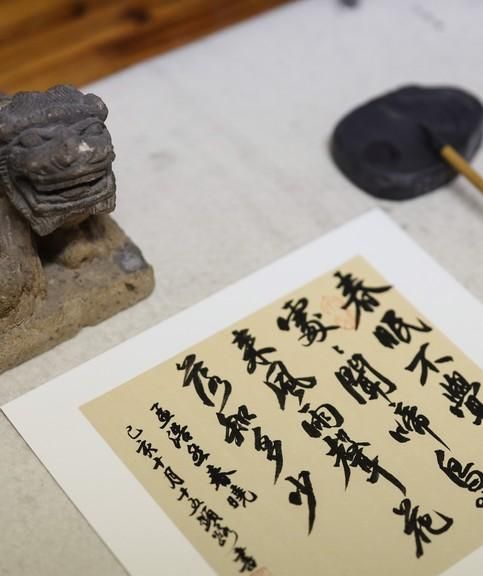 春眠不覺
處〻聞啼鳥
來風雨聲花
落知多少
孟浩然春曉
己亥十月十五
書